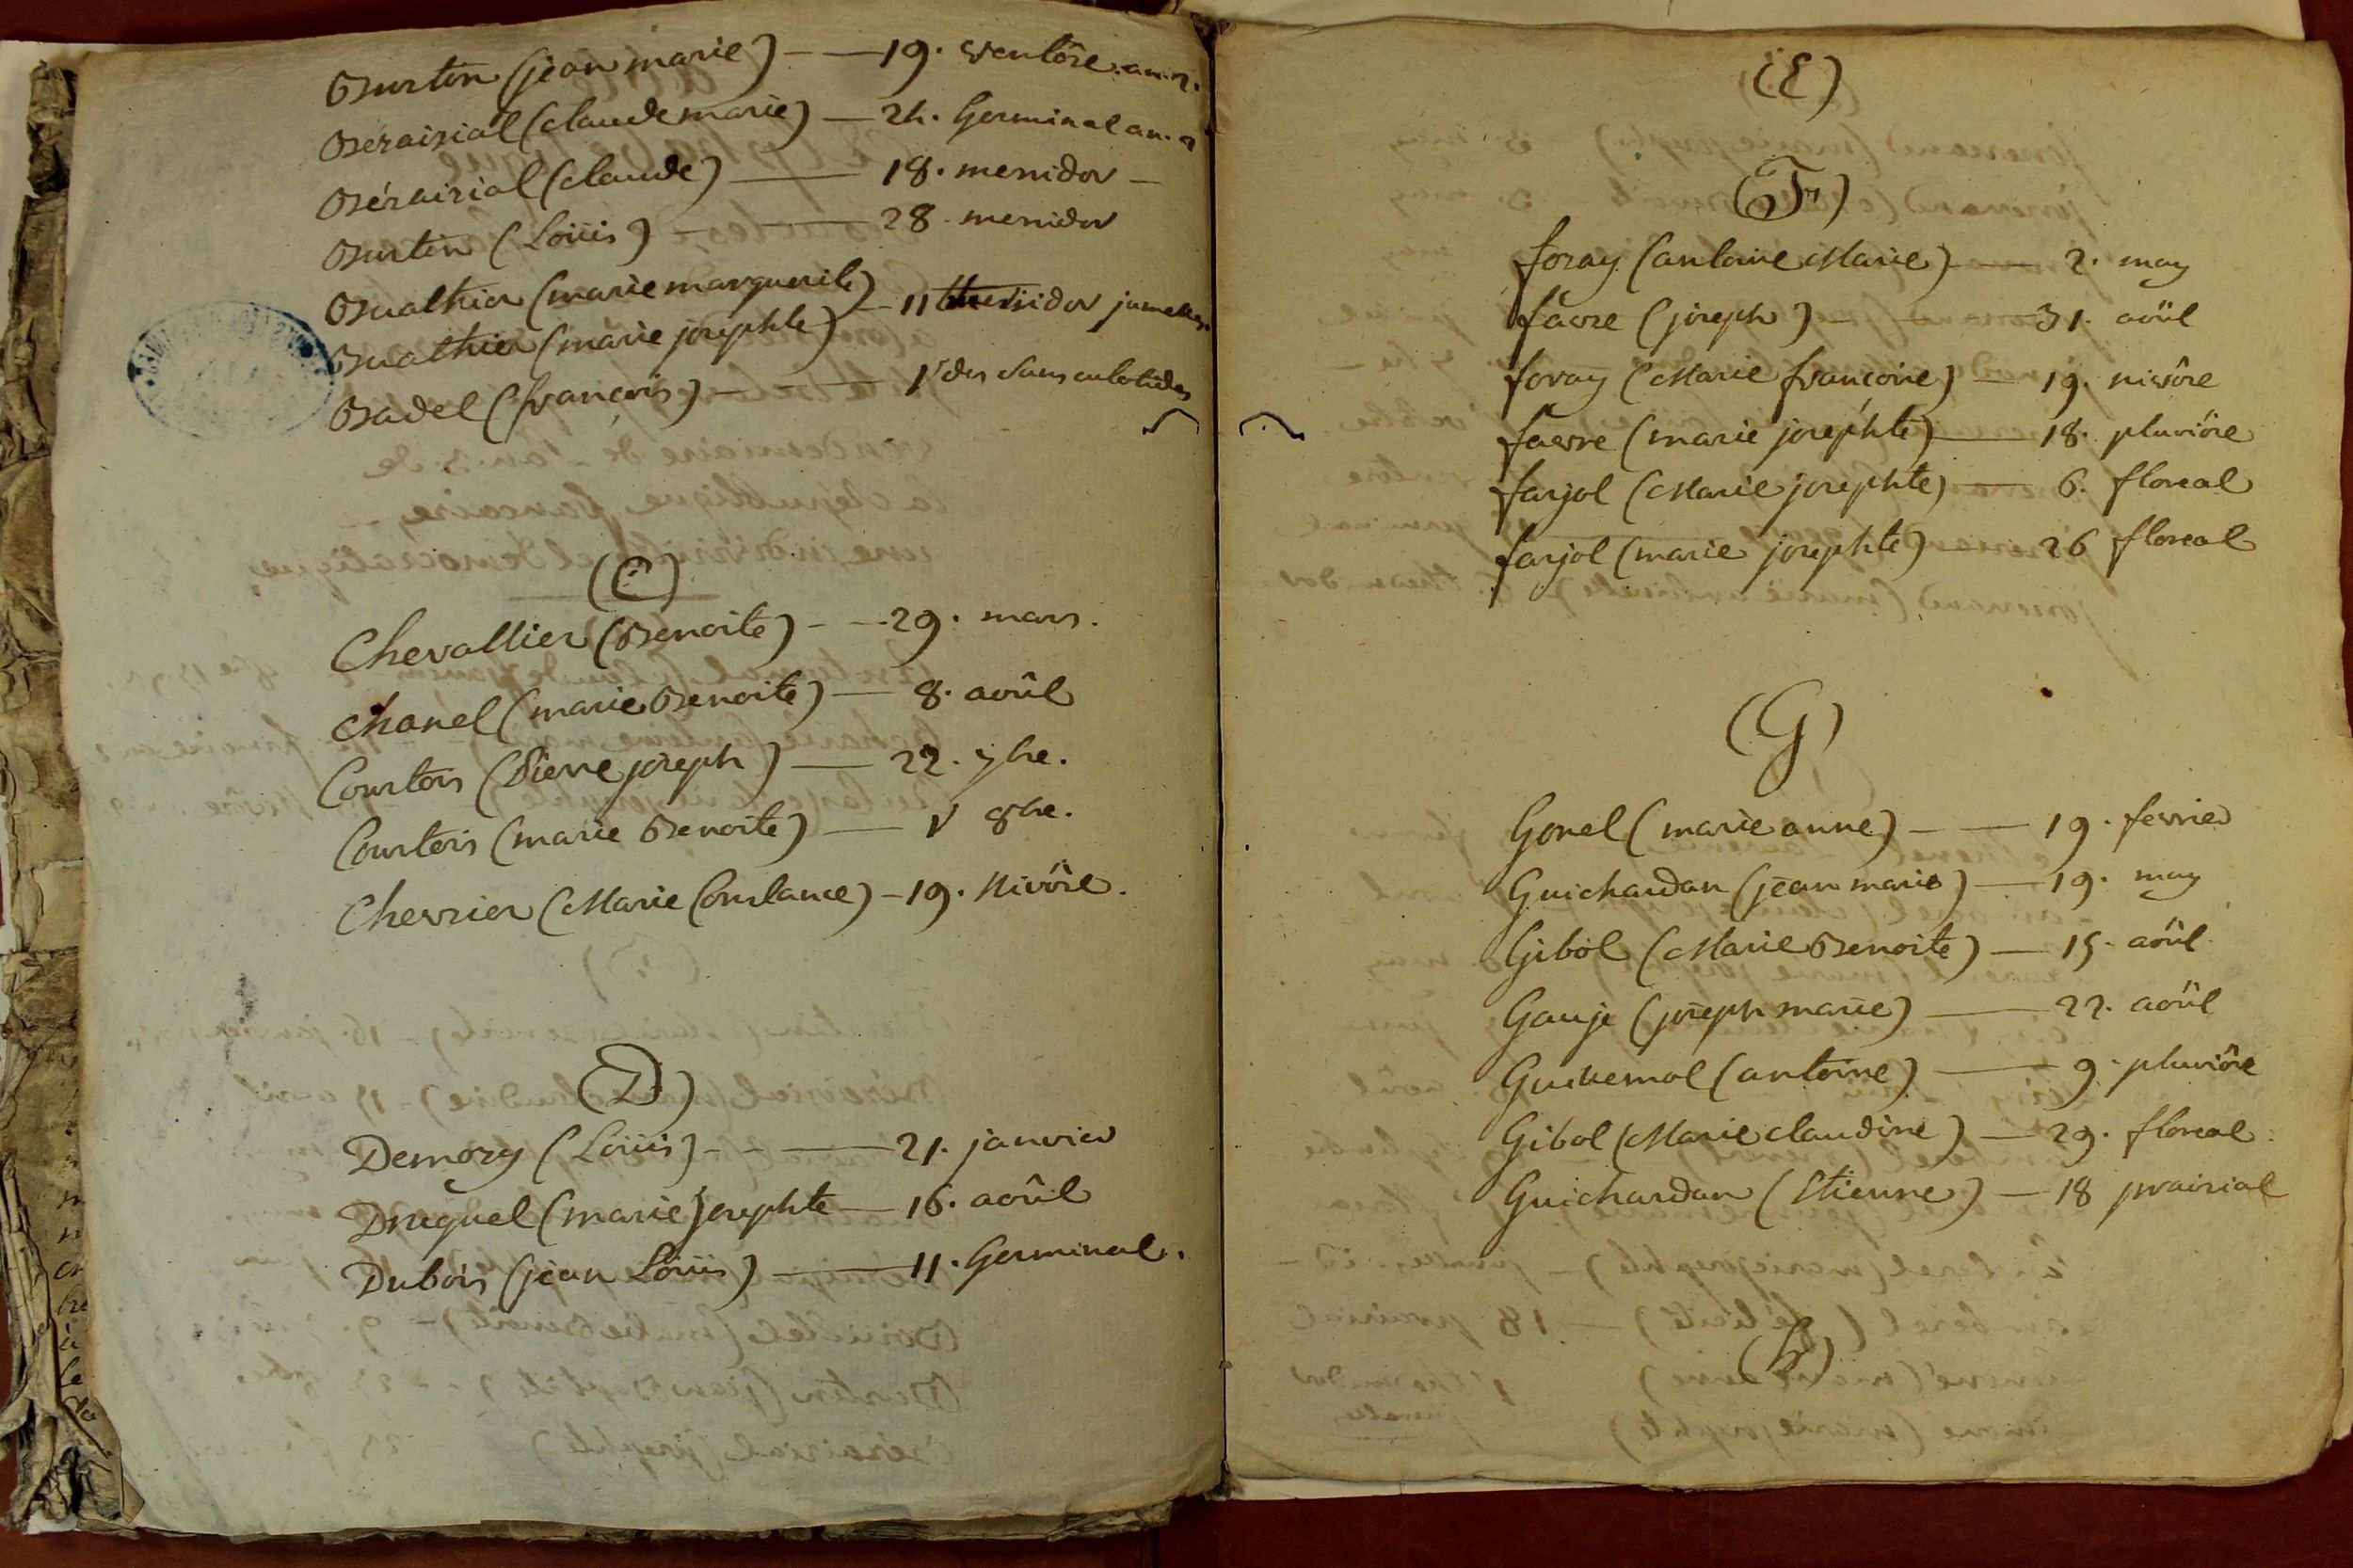 Burtin (jean marie) - - 19. ventôse. an. 2.
Bérairial (claude marie) — 24. Germinal an. 2
Bérairial (claude) — 18. messidor —
Burtin (Loüis) - - — 28. messidor
Buathier (marie marguerite)
— 11 messidor jumelles
Buathier (marie josephte)
Badel (françois) - - — 1er des sans culotides
(C)
Chevallier (Benoite) - - 29. mars.
Chanel (marie Benoite) — 8. aoûst
Courtois (Pierre joseph) — 22. 7bre.
Courtois (marie Benoite) — 1er 8bre.
Chevrier (Marie Constance) — 19. Nivôse.
(D)
Demory (Loüis) - - — 21. janvier
Druguet (marie josephte — 16. aoûst
Dubois (jean Loüis) — 11. Germinal.
(E)
(F)
foray (antoine Marie) — 2. may
favre (joseph) - - — 31. aoüst
foray (Marie françoise) — 19. nivôse
favre (marie josephte) — 18. pluviôse
farjot (Marie josephte) — 6. floreal
farjot (marie josephte) — 26 floreal
(G)
Gonet (marie anne) - — 19. fevrier
Guichardan (jean marie) — 19. may
Gibot (Marie Benoite) — 15. aoüst
Gauje (joseph marie) — 22. aoüst
(antoine) — 9. pluviôse
Gibot (Marie claudine) — 29. floreal.
Guichardan (Etienne) — 18 prairial
(h)